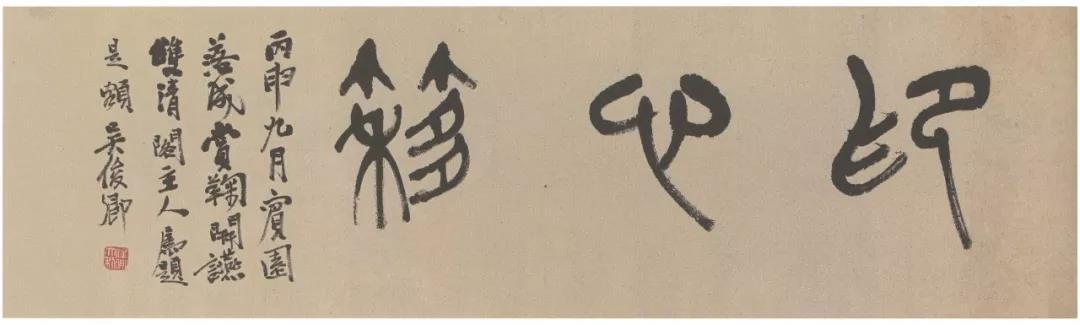 印心簃
丙申九月賓園
落成賞鞠開讌
雙清閣主人屬題
是額吳俊卿